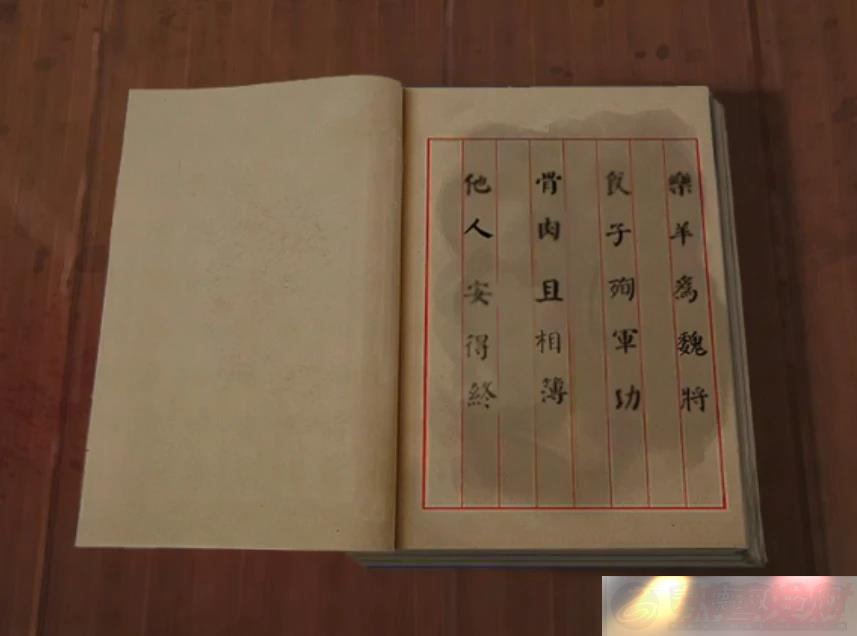 樂羊爲魏將
食子殉軍功
骨肉且相薄
他人安得終